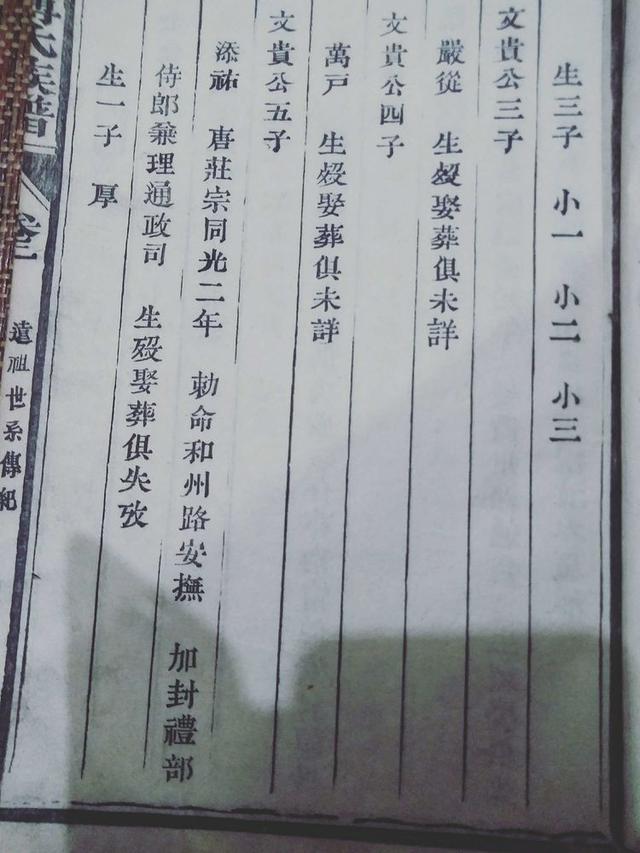 生三子 小一 小二 小三
文貴公三子
嚴從 生歿娶葬俱未詳
文貴公四子
萬戸 生歿娶葬俱未詳
文貴公五子
添祐 唐莊宗同光二年 勅命和州路安撫 加封禮部
侍郎兼理通政司 生歿娶葬俱失攷
生一子 厚
氏族譜 卷二 遠祖世系傳紀